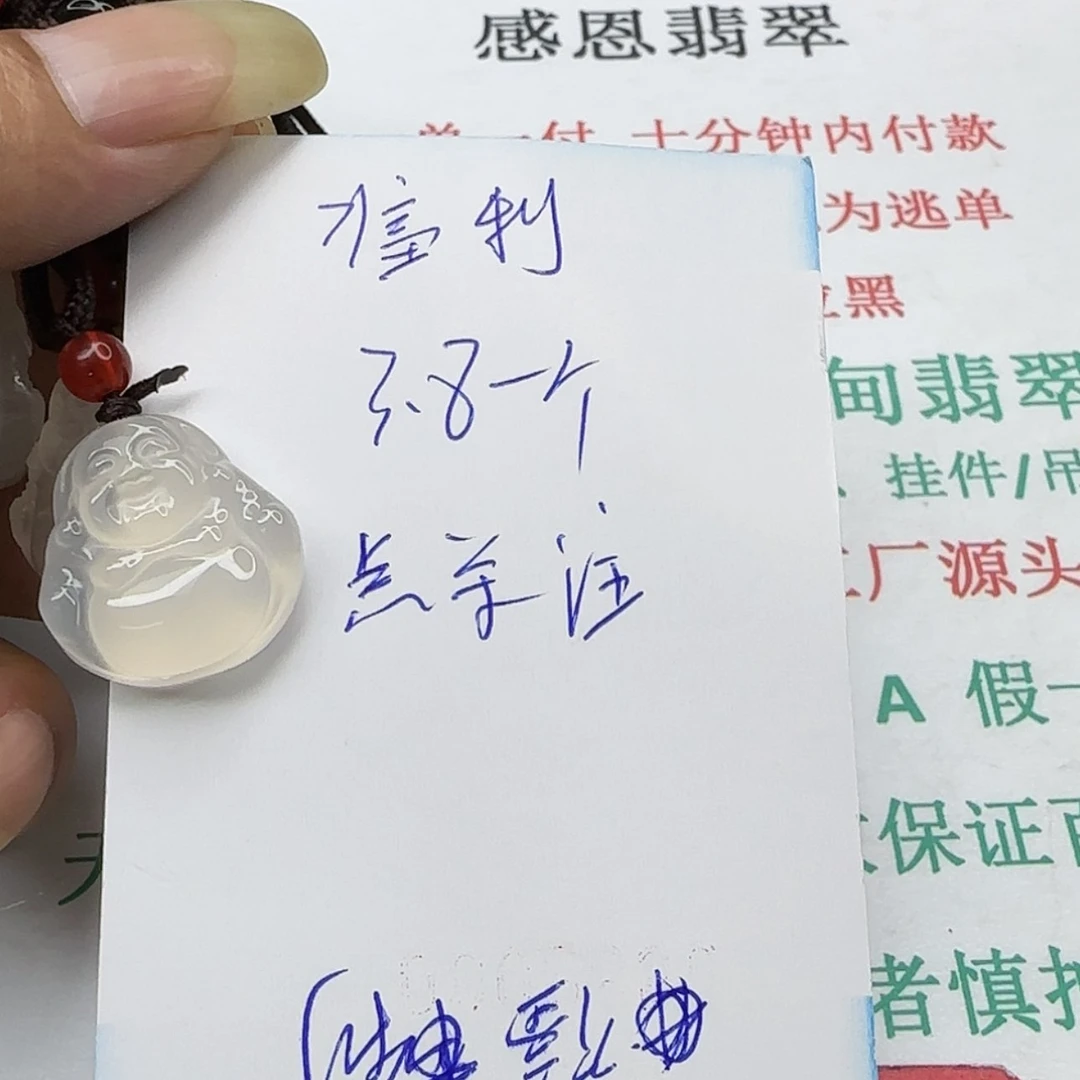 感恩翡翠
付 十分钟内付款
为逃单
黑
甸翡翠
、挂件/吊
厂源头
A 假一
保证百
者慎拍
福利
3.8一个
点关注